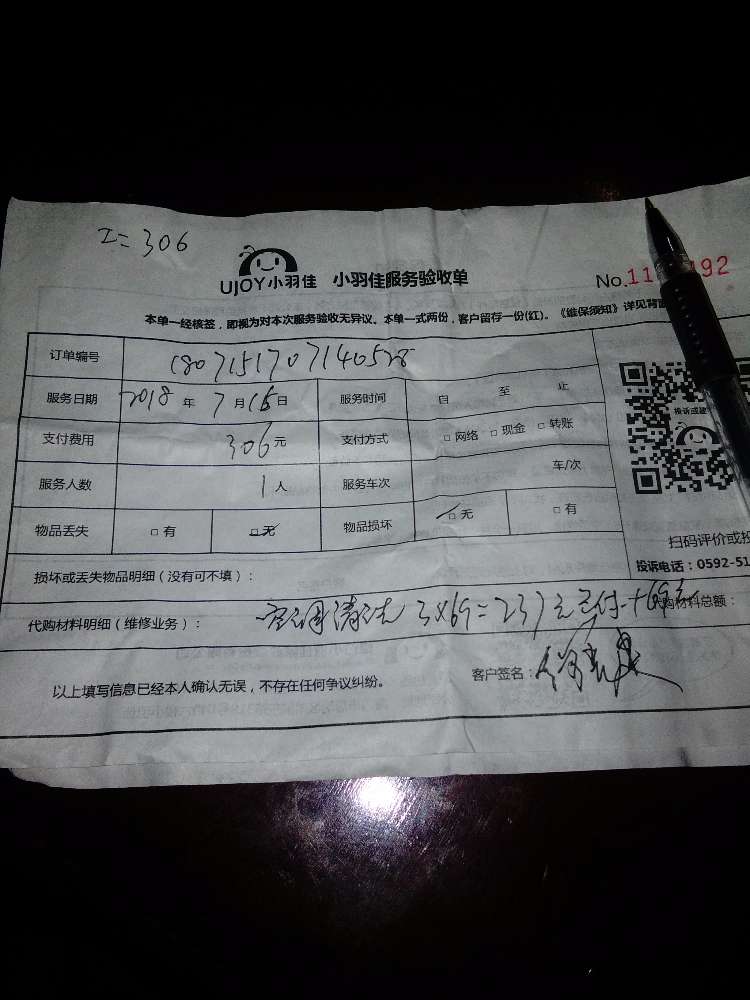 I=306
UJOY小羽佳 小羽佳服务验收单 No.11 92
本单一经核签，即视为对本次服务验收无异议。本单一式两份，客户留存一份(红)。《维保须知》详见背面
订单编号 1807151707140528
服务日期 2018年7月15日 服务时间 自 至 止
支付费用 306元 支付方式 □网络 □现金 □转账
服务人数 1人 服务车次 车/次
物品丢失 □有 □无 物品损坏 □无 □有
扫码评价或投
投诉电话：0592-51
损坏或丢失物品明细（没有可不填）：
代购材料明细（维修业务）： 空调清洗 3×69=237元已付+69元 代购材料总额：
以上填写信息已经本人确认无误，不存在任何争议纠纷。 客户签名：